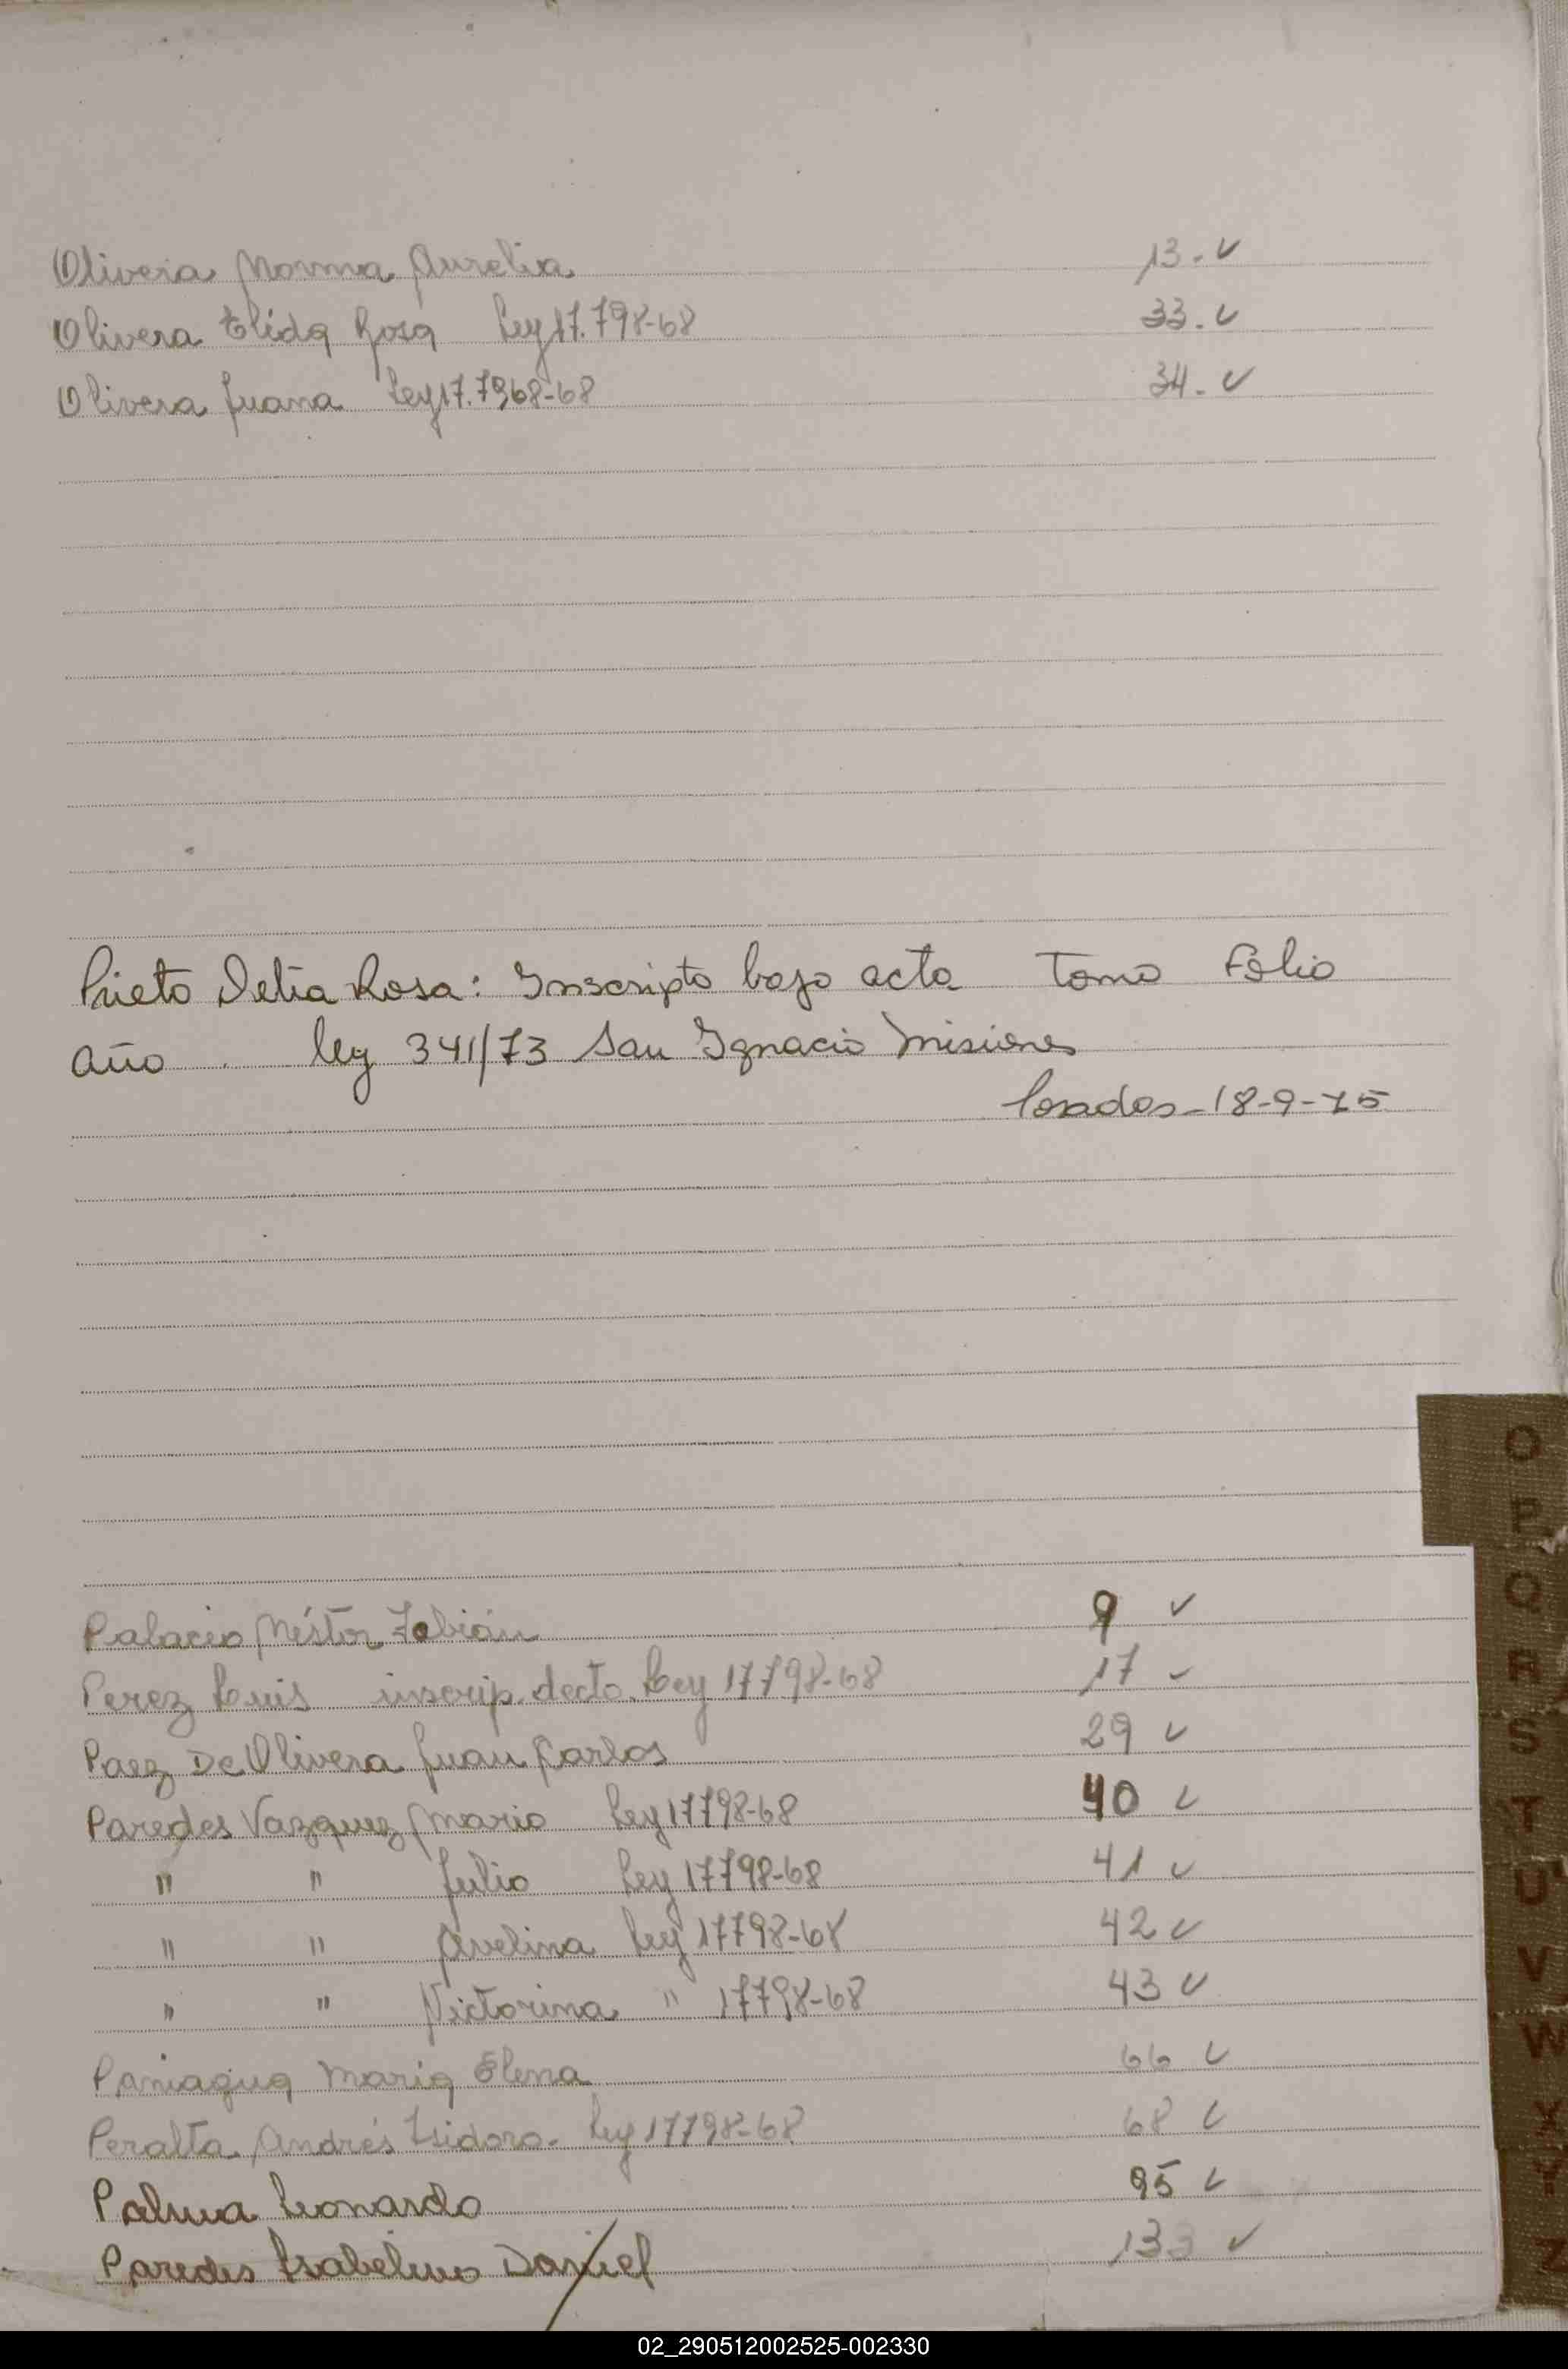 Oliveira Norma Aurelia 13. ✓
Olivera Elida Rosa Ley 17.798-68 33. ✓
Olivera Juana Ley 17.7968-68 34. ✓
Prieto Delia Rosa: Inscripto bajo acta Tomo Folio
año . ley 341/73 San Ignacio Misiones
Posadas - 18-9-75
Palacio Néstor Fabián 9 ✓
Perez Luis inscrip. decto. Ley 17798-68 17 ✓
Paez De Olivera Juan Carlos 29 ✓
Paredes Vazquez Mario Ley 17798-68 40 ✓
" " Julio Ley 17798-68 41 ✓
" " Avelina Ley 17798-68 42 ✓
" " Victorina " 17798-68 43 ✓
Paniagua Maria Elena 66 ✓
Peralta Andrés Isidoro. Ley 17798-68 68 ✓
Palma Leonardo 95 ✓
Paredes Isabelino Daniel 133 ✓
O
P
Q
R
S
T
U
V
W
X
Y
Z
02_290512002525-002330